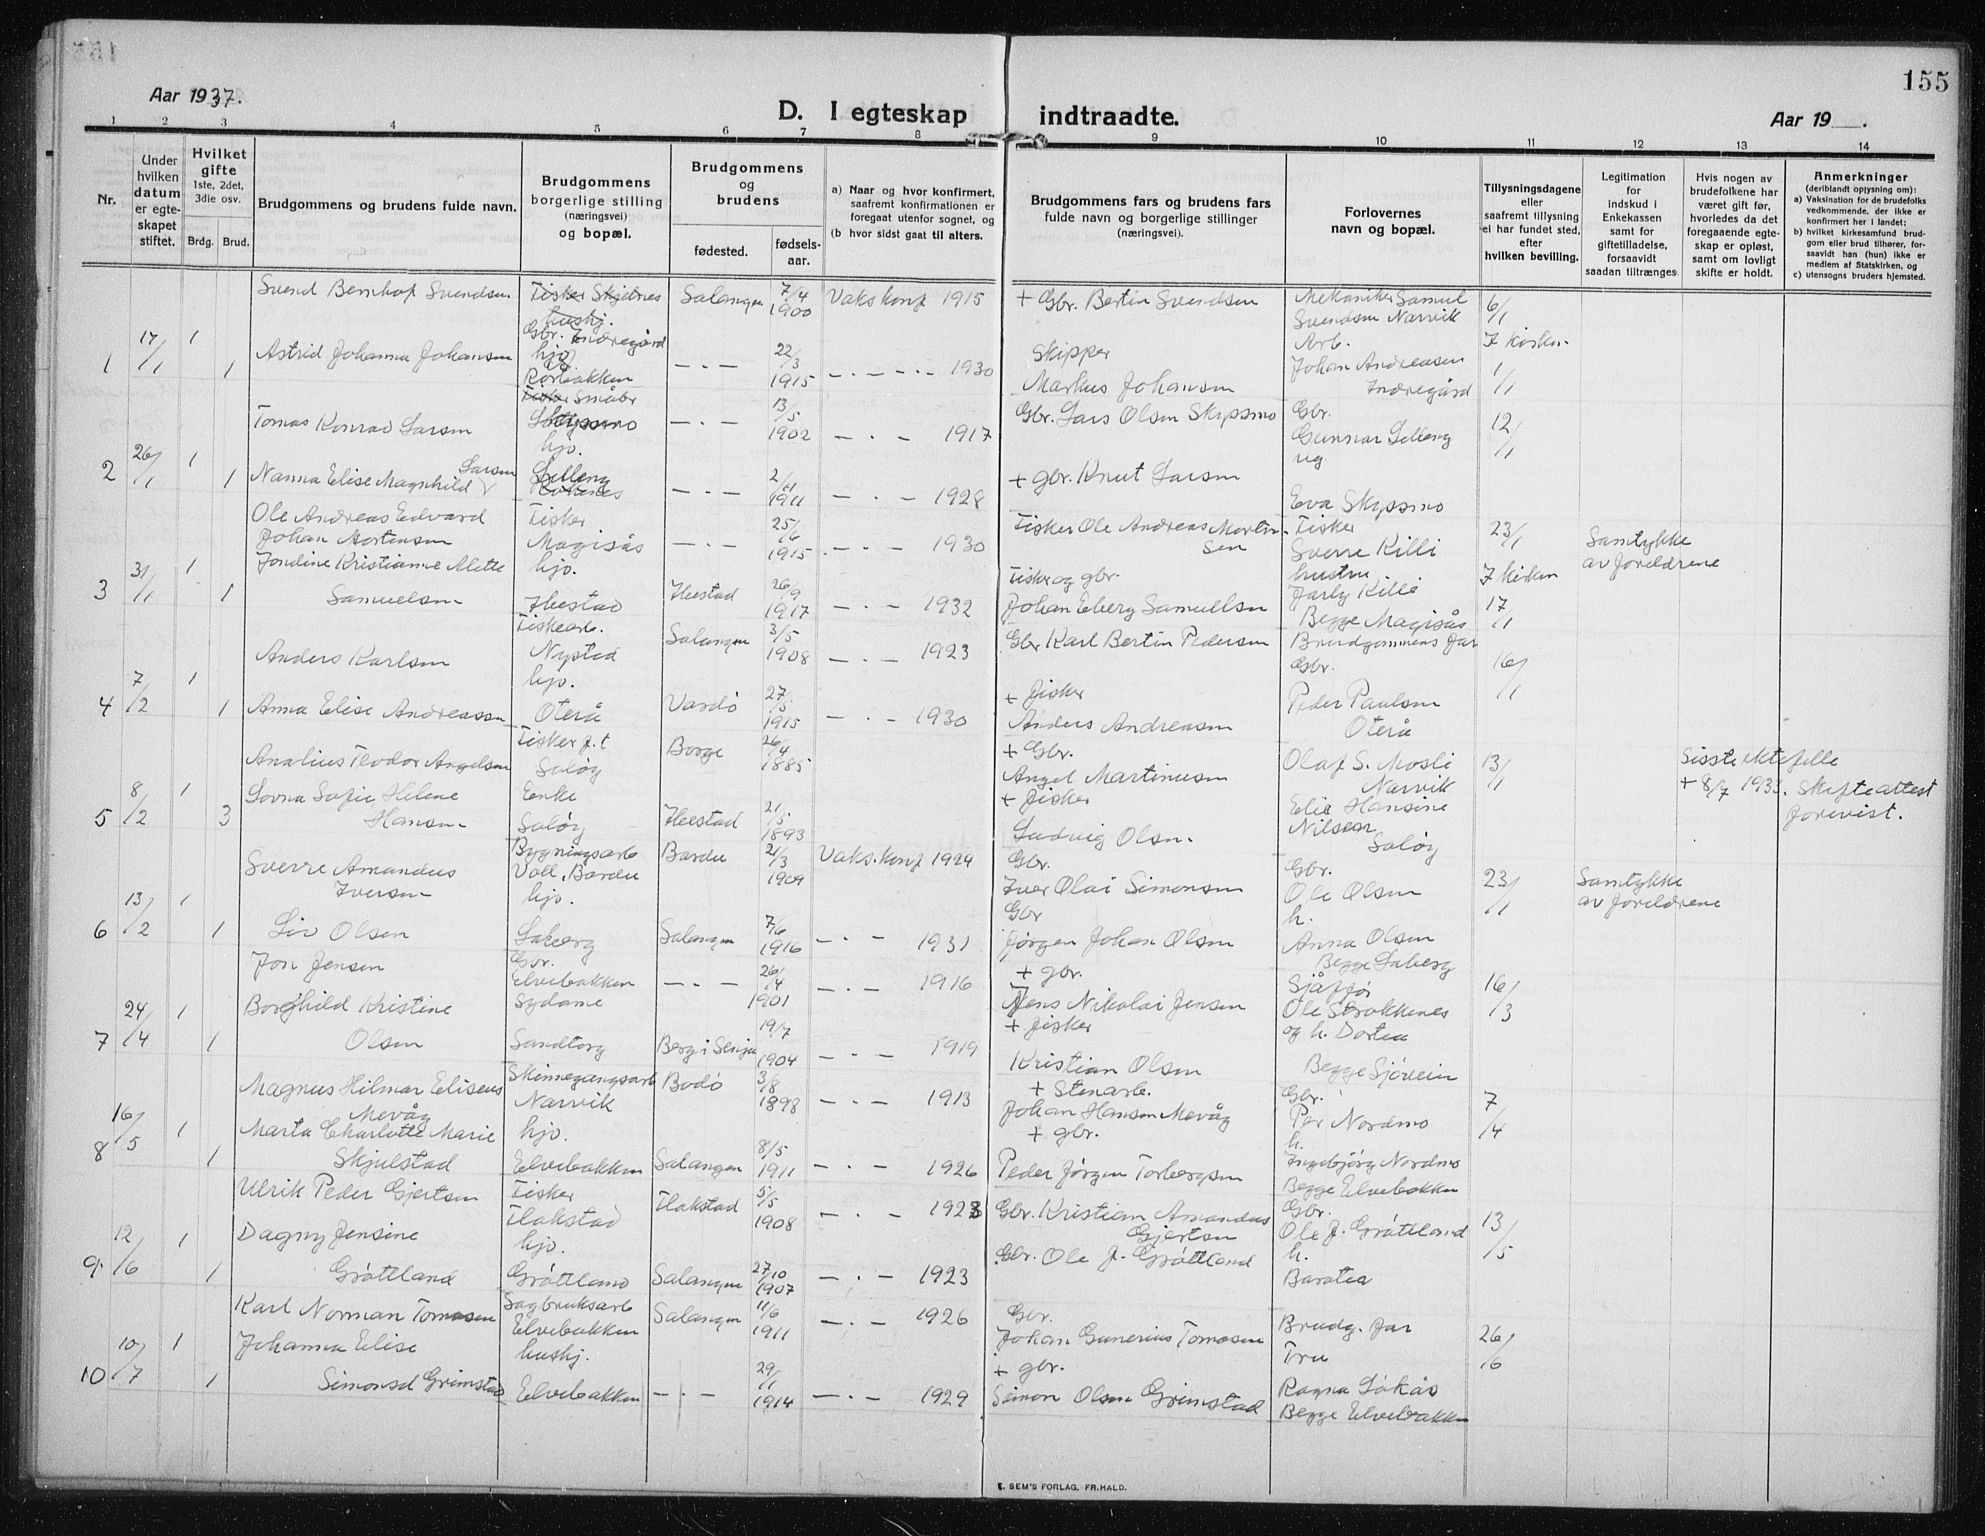 155
Aar 1937.
D. I egteskap indtraadte.
Aar 19 .
1 2 3 4 5 6 7 8 9 10 11 12 13 14
Nr.
Under hvilken datum er egte-skapet stiftet.
Hvilket gifte 1ste, 2det, 3die osv.
Brdg. Brud.
Brudgommens og brudens fulde navn.
Brudgommens borgerlige stilling (næringsvei) og bopæl.
Brudgommens og brudens
fødested.
fødsels-aar.
a) Naar og hvor konfirmert, saafremt konfirmationen er foregaat utenfor sognet, og
(b hvor sidst gaat til alters.
Brudgommens fars og brudens fars fulde navn og borgerlige stillinger (næringsvei).
Forlovernes navn og bopæl.
Tillysningsdagene eller saafremt tillysning ei har fundet sted, efter hvilken bevilling.
Legitimation for indskud i Enkekassen samt for giftetilladelse, forsaavidt saadan tiltrænges.
Hvis nogen av brudefolkene har været gift før, hvorledes da det foregaaende egte-skap er opløst, samt om lovligt skifte er holdt.
Anmerkninger (deriblandt opjysning om):
a) Vaksination for de brudefolks vedkommende, der ikke er konfirmert her i landet;
b) hvilket kirkesamfund brud-gom eller brud tilhører, for-saavidt han (hun) ikke er medlem af Statskirken, og
c) utensogns bruders hjemsted.
1 17/1 1 Svend Bernhof Svendsen Fisker Skjelnes Salangen 7/4 1900 Vaks konf 1915 + Gbr. Bertin Svendsen Mekaniker Samuel Svendsen Narvik 6/1
1 Astrid Johanna Johansen hushj. Gbr. Indregård hjo. Rørbakken — . — 22/3 1915 — . — . — 1930 Skipper Markus Johansen Arb. Johan Andreasen Indregård 7 kirken 1/1
2 26/1 1 Tomas Konrad Larsen Fisker Småbr Skyssmo — . — 13/5 1902 — . — 1917 Gbr. Lars Olsen Skyssmo Gbr. Gunnar Lilleng 12/1
1 Nanna Elise Magnhild Larsen hjo. Lilleng — . — 2/11 1911 — . — 1928 + gbr. Knut Larsen ug. Eva Skyssmo
3 31/1 1 Ole Andreas Edvard Johan Mortensen Fisker Magisås — . — 25/6 1915 — . — 1930 Fisker Ole Andreas Mortensen Fisker Sverre Killi 23/1 Samtykke av foreldrene
1 Jondine Kristianne Alette Samuelsen hjo. Ibestad Ibestad 26/9 1917 — . — 1932 Fisker og gbr. Johan Eberg Samuelsen hustru Jarly Killi Begge Magisås 7 kirken 17/1
4 7/2 1 Anders Karlsen Fiskearb. Nysted Salangen 3/5 1908 — . — 1923 Gbr Karl Bertin Pedersen Brudgommens far 16/1
1 Anna Elise Andreassen hjo. Oterå Vardö 27/5 1915 — . — 1930 + fisker Anders Andreasen Gbr. Peder Paulsen Oterå
5 8/2 1 Analius Teodor Angelsen Fisker f.t Saløy Borge 26/4 1885 + Gbr. Angel Martinusen Olaf S. Mosli Narvik 13/1 Sisste ektefelle + 8/7 1933. Skifteattest forevist.
3 Lovna Sofie Helene Hansen Enke Saløy Ibestad 21/5 1893 + fisker Ludvig Olsen. Elie Hansine Nilsen Saløy
6 13/2 1 Sverre Amandus Iversen Bygningsarb Voll, Bardu Bardu 21/3 1909 Vaks. konf 1924 Gbr. Iver Olai Simonsen Gbr. Ole Olsen 23/1 Samtykke av foreldrene
1 Liv Olsen hjo. Laberg Salangen 7/6 1916 — . — 1931 Gbr Jørgen Johan Olsen h. Anna Olsen Begge Laberg
7 24/4 1 Jon Jensen Gbr. Elvebakken — . — 26/4 1901 — . — 1916 + gbr. Jens Nikolai Jensen Sjåfør Ole Strokkenes 16/3
1 Borghild Kristine Olsen Sydame Sandtorg Berg i Senja 19/7 1904 — . — 1919 + fisker Kristian Olsen og h. Dortea Begge Sjøvein
8 16/5 1 Magnus Hilmar Eliseus Mevåg Skinnegangsarb Narvik Bodö 3/8 1898 — . — 1913 + Stenarb. Johan Hansen Mevåg Gbr. Per Nordmo 7/4
1 Marta Charlotte Marie Skjelstad hjo. Elvebakken Salangen 8/5 1911 — . — 1926 + gbr. Peder Jørgen Torbergsen h. Ingebjörg Nordmo Begge Elvebakken
9 12/6 1 Ulrik Peder Gjertsen Fisker Flakstad Flakstad 5/5 1908 — . — 1923 Gbr. Kristian Amandus Gjertsen Gbr. Ole J. Gröttland 13/5
1 Dagny Jensine Gröttland hjo. Gröttland Salangen 27/10 1907 — . — 1923 Gbr. Ole J. Gröttland h. Baratea
10 10/7 1 Karl Norman Tomasen Sagbruksarb Elvebakken Salangen 11/6 1911 — . — 1926 Gbr. Johan Gunerius Tomasen Brudg. far 26/6
1 Johanna Elise Simonsd Grimstad hushj. Elvebakken — . — 29/1 1914 — . — 1929 + gbr. Simon Olsen Grimstad Fru Ragna Løkås Begge Elvebakken
E. SEM'S FORLAG, FR.HALD.